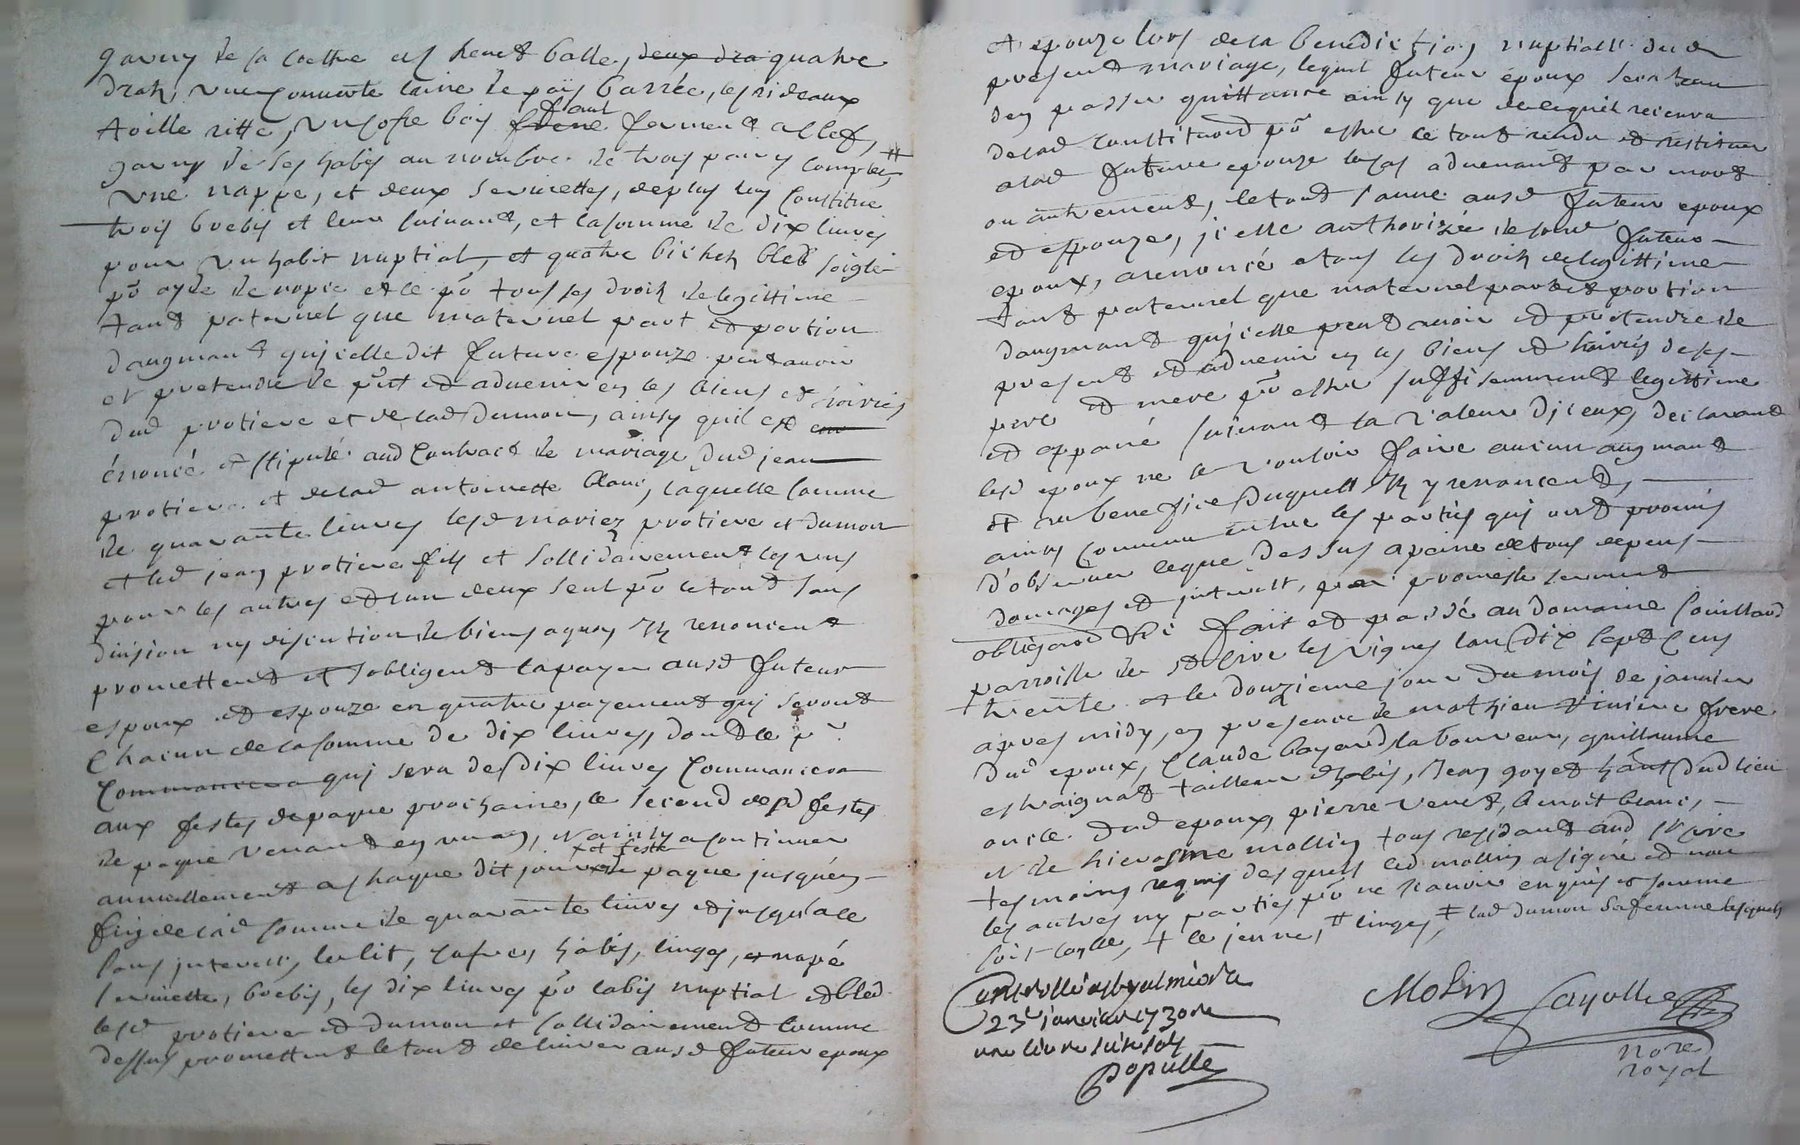 garny de sa coethe et henet balle, deux dra quatre
draps, une couuerte laine de païs barrée, les rideaux
toille ritte, un cofre bois fermant a clef,
garny de ses habis au nombre de trois paires complets #
une nappe, et deux seruiettes, deplus luy constitue
trois brebis et leur suiuant, et la somme de dix liures
pour un habit nuptial, et quatre bichets bled soigle
po᷃ ayde de nopce et ce po᷃ tous ses droits de legittime
tant paternel que maternel part et portion
daugmant quicelle dit future espouze peut auoir
et pretendre de pn̄t et aduenir en les biens et hoiries
dud protiere et de lad dumon, ainsy quil est
énoncé et stipulé aud Contract de mariage dud jean
protiere et delad antoinette blanc, laquelle somme
de quarante liures lesd mariez protiere et dumon
et led jean protiere fils et sollidairement les uns
pour les autres et lun deux seul po᷃ le tout sans
diuision ny discution de biens aquoy ils renoncent
promettent et sobligent la payer ausd futeur
espoux et espouze en quatre payement qui seront
Chacun de la somme de dix liures, dont le pr̄
Commancera qui sera desd dix liures Commancera
aux festes de paque prochaine, le second esd festes
de paque venant en un an, et ainsy a continuer
et feste
annuellement a chaque dit jour de paque jusqu'en
fin de lad somme de quarante liures et jusqua ce
sans jnterest, le lit, cofre, habis, linges, et napé
seruiette, brebis, les dix liures po᷃ labis nuptial et bled
lesd protiere et dumon et sollidairement comme
dessus promettent le tout deliurer ausd futeur epoux
et epouze lors de la benediction nuptialle dud
present mariage, lequel futeur époux sera tenu
den passer quittance ainsy que de ce quil receura
delad constitution po᷃ estre le tout rendu et restituer
alad future epouze le cas aduenant par mort
ou autrement, le tout sauue ausd futeur epoux
et espouze, jcelle authorizée de sond futeur
epoux, a renoncé a tous les droits de legittime
tant paternel que maternel part et portion
daugmant quicelle peut auoir et pretendre de
present et aduenir en les biens et hoiries deses
pere et mere po᷃ estre suffisemment legittime
et apparé suiuant la valeur djceux, declarant
lesd epoux ne se vouloir faire aucun augmant
et au benefice duquell ils y renoncent,
ainsy conuenu entre les parties qui ont promis
d'obseruer ceque dessus a peine de tous depens
domages et jnterest, par promesse serment
obligaōn Fait et passé au domaine Couilland
parroisse de st cire les vignes lan dix sept Cens
trente et le douzieme jour du mois de januier
apres midy, en presence de mathieu viniere frere
dud epoux, Claude bayard laboureur, guillaume
estraignat tailleur dhabis, jean goyet dud lieu
oncle dud epoux, pierre venet, benoit blanc,
et de hierosme mollin tous residant aud st cire
tesmoins requis desquels led mollin a signé et non
les autres ny parties po᷃ ne scauoir enquis et somme
soit-conlle, + le jeune, # linges, ‡ lad dumon sa femme lesquels
Controllé a st galmier le
23e januier 1730 re
une liure seize sols
Populle
Molin
Cayolle
nore
royal